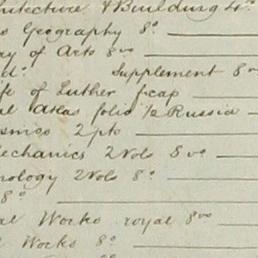 hitecture & Building 4º
s Geography 8º
ry of Arts 8vo
d: Supplement 8vo
ife of Luther fcap
al Atlas folio ½ Russia
smico 2 pts
echanics 2 Vols 8vo
nology 2 Vols 8º
8º
al Works royal 8vo
l Works 8º